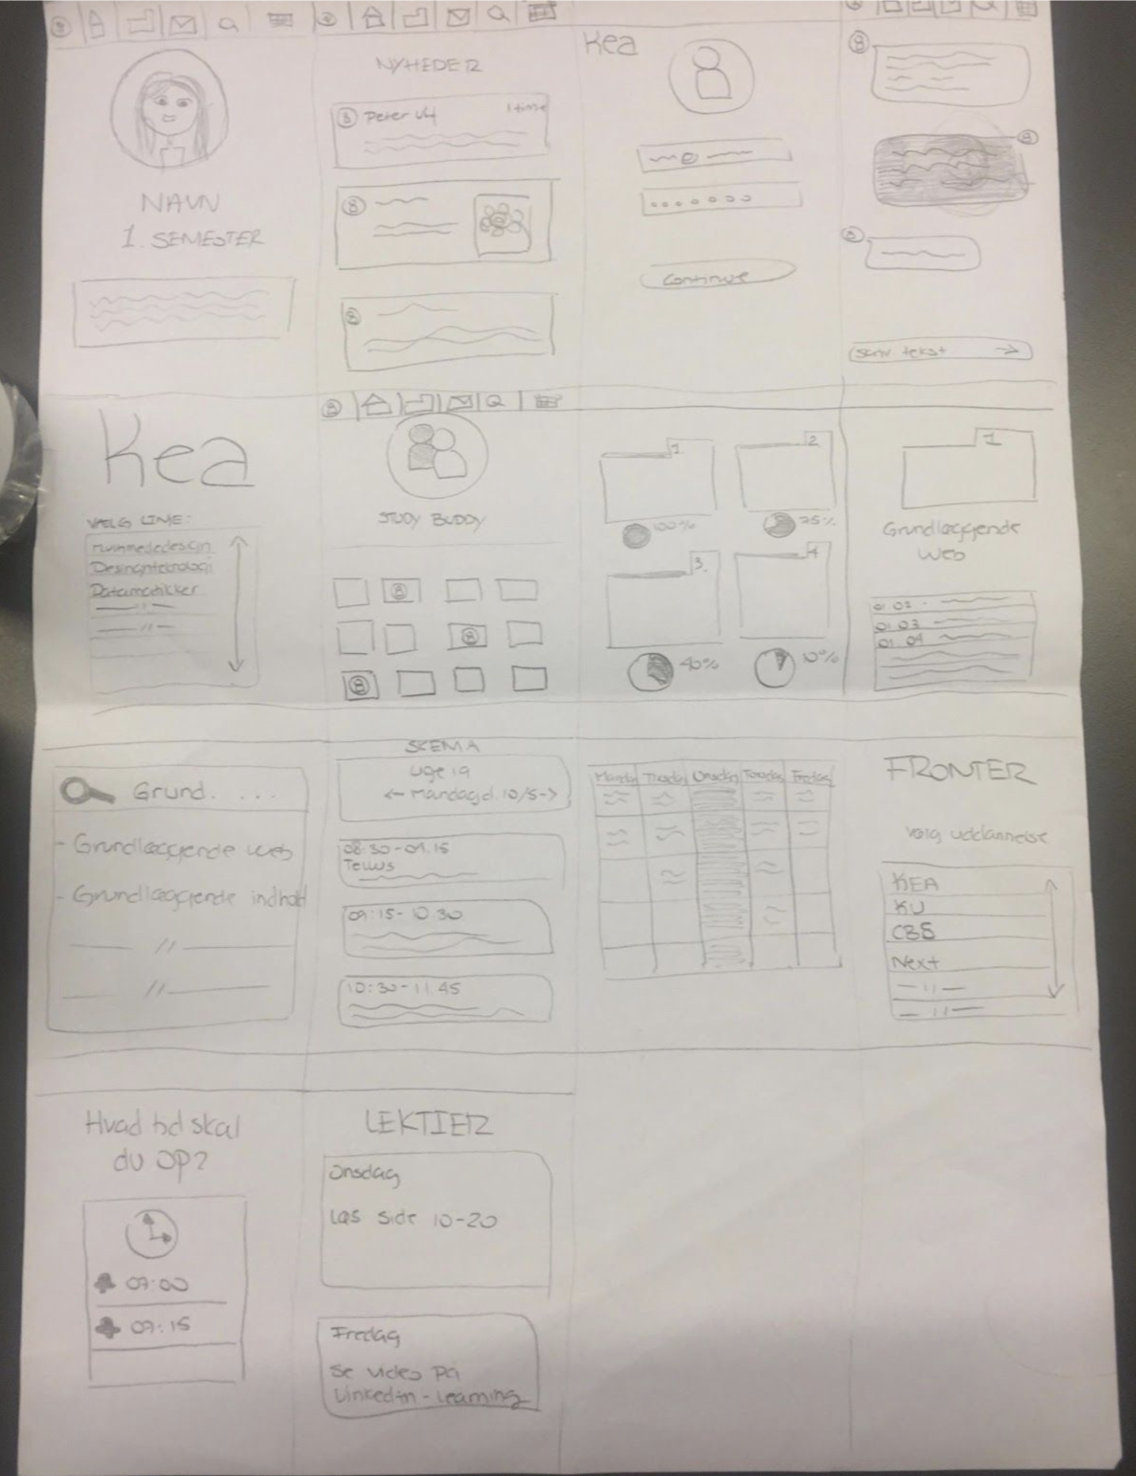 NAVN
1. SEMESTER
NYHEDER
Peter Ulf
1 time
Kea
Continue
Skriv tekst
Kea
VÆLG LINJE:
Designteknologi
Datamatikker
STUDY BUDDY
1
100%
2
25%
3.
40%
4
10%
1
Grundlæggende
web
01.02 -
01.03
01.04
Grund. . . .
- Grundlæggende web
- Grundlæggende indhold
SKEMA
uge 19
<- mandag d. 10/5 ->
08:30-09.15
Tellus
09:15-10.30
10:30-11.45
Mandag Tirsdag Onsdag Torsdag Fredag
FRONTER
Vælg uddannelse
KEA
KU
CBS
Next
Hvad tid skal
du OP?
07:00
07:15
LEKTIER
Onsdag
Læs side 10-20
Fredag
Se video på
Linkedin-Learning